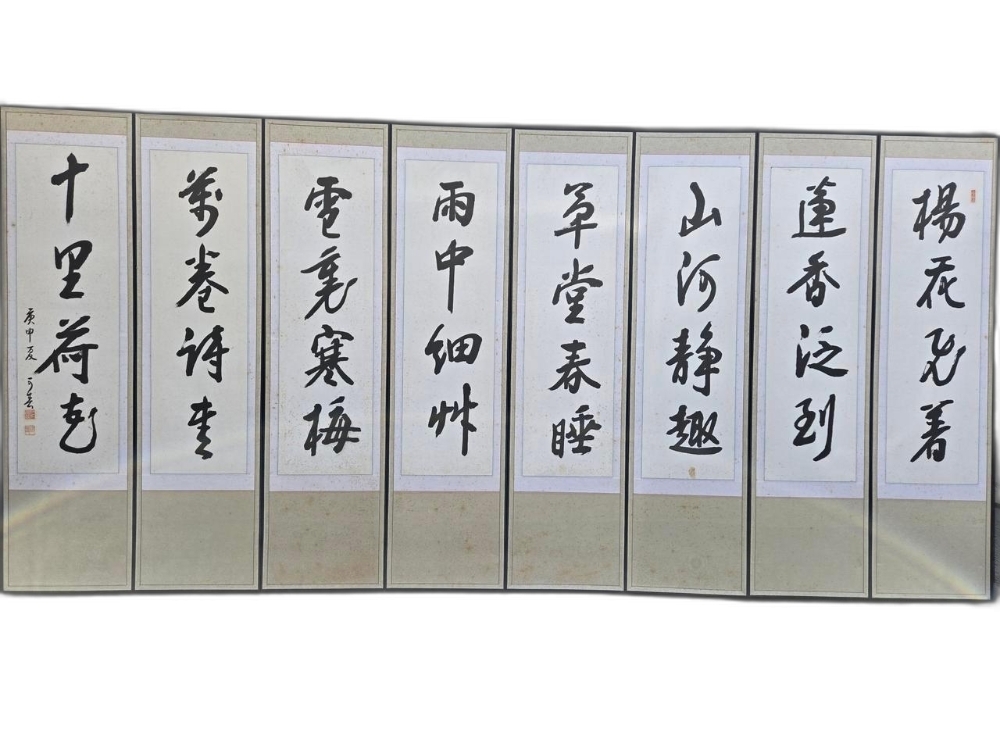 楊花飛着
蓮香泛到
山河靜趣
草堂春睡
雨中細艸
雪裏寒梅
萬卷詩書
十里荷花
庚申夏